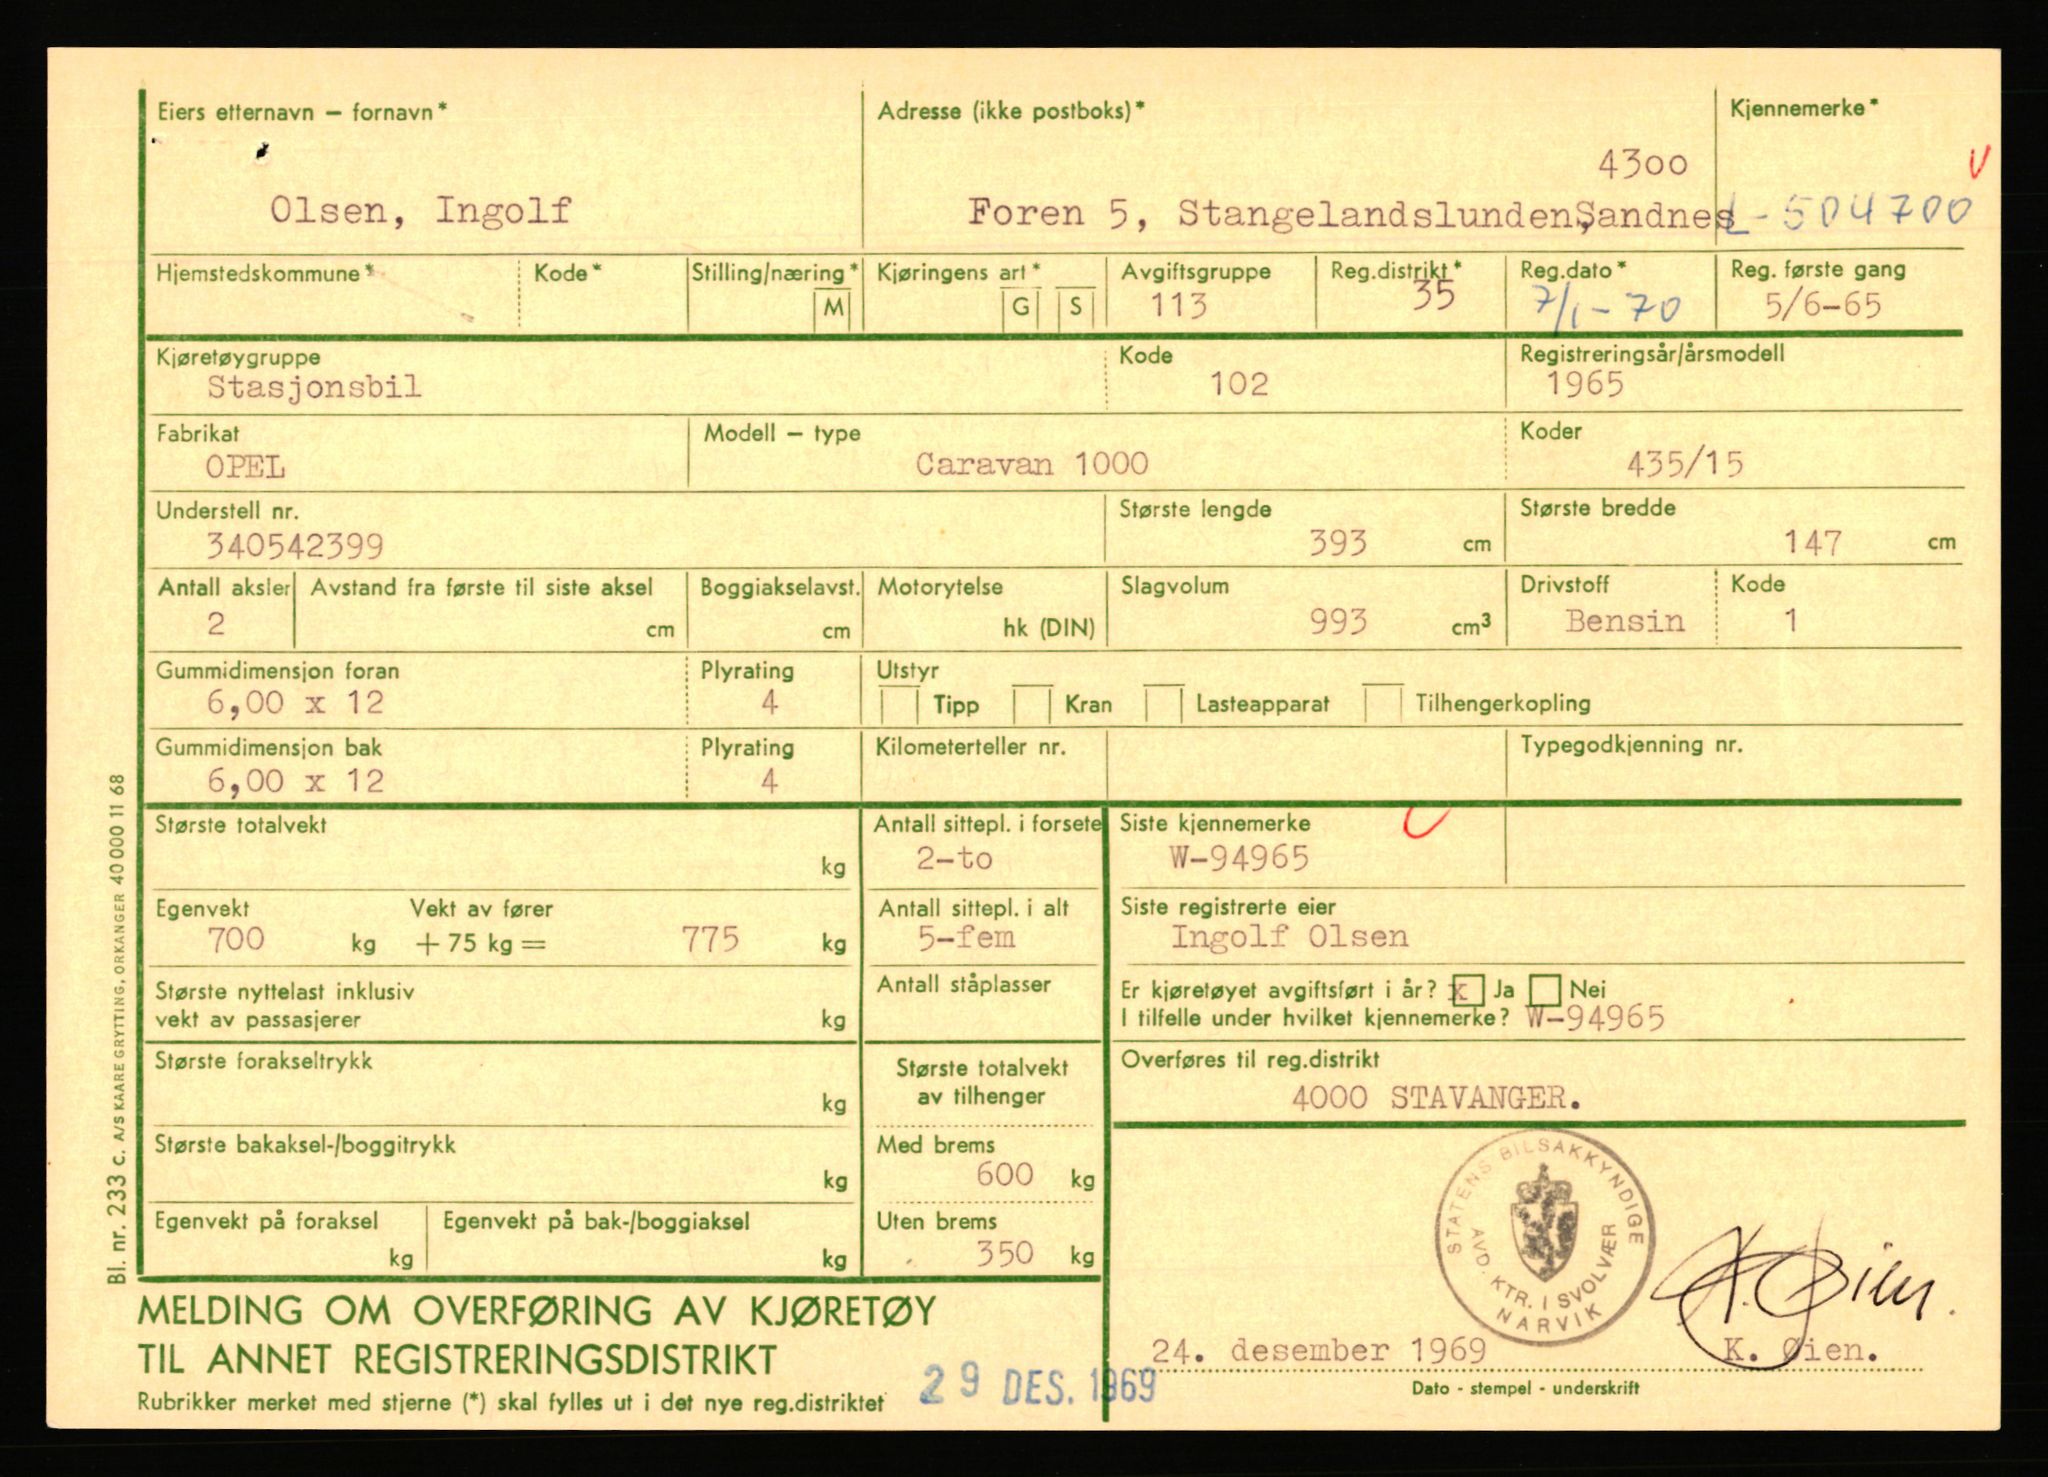 Eiers etternavn – fornavn*
Adresse (ikke postboks)*
Kjennemerke*
4300
Olsen, Ingolf
Foren 5, Stangelandslunden, Sandnes
L-504700
Hjemstedskommune*
Kode*
Stilling/næring*
M
Kjøringens art*
G
S
Avgiftsgruppe
113
Reg.distrikt*
35
Reg.dato*
7/1-70
Reg. første gang
5/6-65
Kjøretøygruppe
Stasjonsbil
Kode
102
Registreringsår/årsmodell
1965
Fabrikat
OPEL
Modell – type
Caravan 1000
Koder
435/15
Understell nr.
340542399
Største lengde
393 cm
Største bredde
147 cm
Antall aksler
2
Avstand fra første til siste aksel
cm
Boggiakselavst.
cm
Motorytelse
hk (DIN)
Slagvolum
993 cm³
Drivstoff
Bensin
Kode
1
Gummidimensjon foran
6,00 x 12
Plyrating
4
Utstyr
Tipp
Kran
Lasteapparat
Tilhengerkopling
Gummidimensjon bak
6,00 x 12
Plyrating
4
Kilometerteller nr.
Typegodkjenning nr.
Største totalvekt
kg
Antall sittepl. i forsete
2-to
Siste kjennemerke
W-94965
Egenvekt
700 kg
Vekt av fører
+ 75 kg = 775 kg
Antall sittepl. i alt
5-fem
Siste registrerte eier
Ingolf Olsen
Største nyttelast inklusiv
vekt av passasjerer
kg
Antall ståplasser
Er kjøretøyet avgiftsført i år? x Ja Nei
I tilfelle under hvilket kjennemerke? W-94965
Største forakseltrykk
kg
Største totalvekt
av tilhenger
Overføres til reg.distrikt
4000 STAVANGER.
Største bakaksel-/boggitrykk
kg
Med brems
600 kg
Egenvekt på foraksel
kg
Egenvekt på bak-/boggiaksel
kg
Uten brems
350 kg
STATENS BILSAKKYNDIGE
AVD. KTR. I SVOLVÆR
NARVIK
K. Øien.
MELDING OM OVERFØRING AV KJØRETØY
TIL ANNET REGISTRERINGSDISTRIKT
Rubrikker merket med stjerne (*) skal fylles ut i det nye reg.distriktet
29 DES. 1969
24. desember 1969
K. Øien.
Dato - stempel - underskrift
Bl. nr. 233 c. A/S KAARE GRYTTING, ORKANGER 40 000 11 68